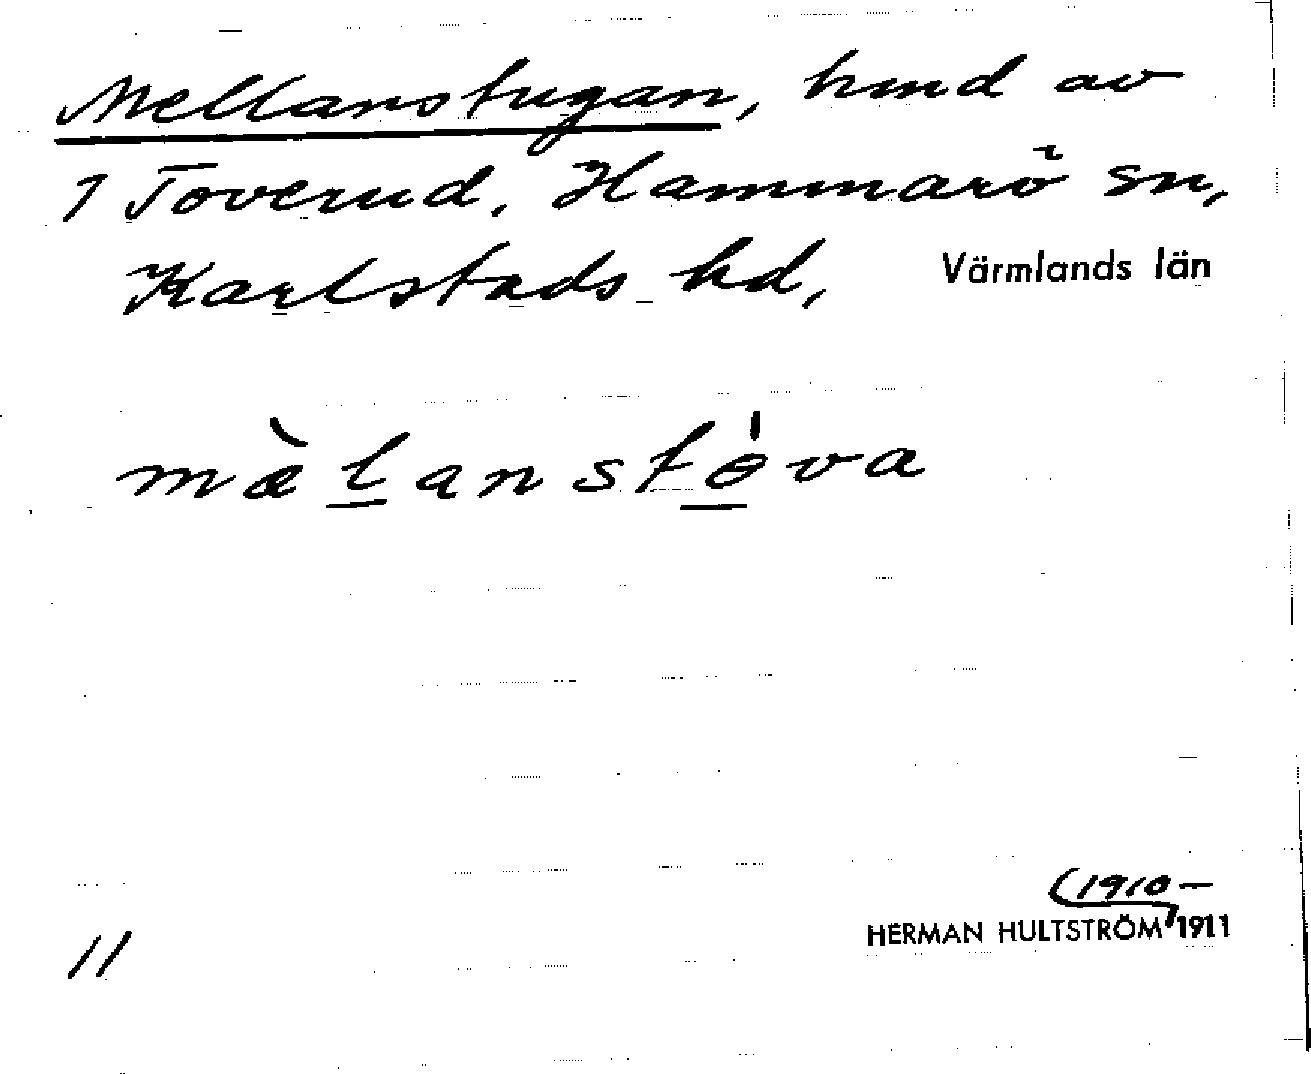 Mellanstugan, hmd av
1 Toverud, Hammarö sn,
Karlstads hd, Värmlands län
mæ̀lanstɵ́va
(1910–
HERMAN HULTSTRÖM 1911
11